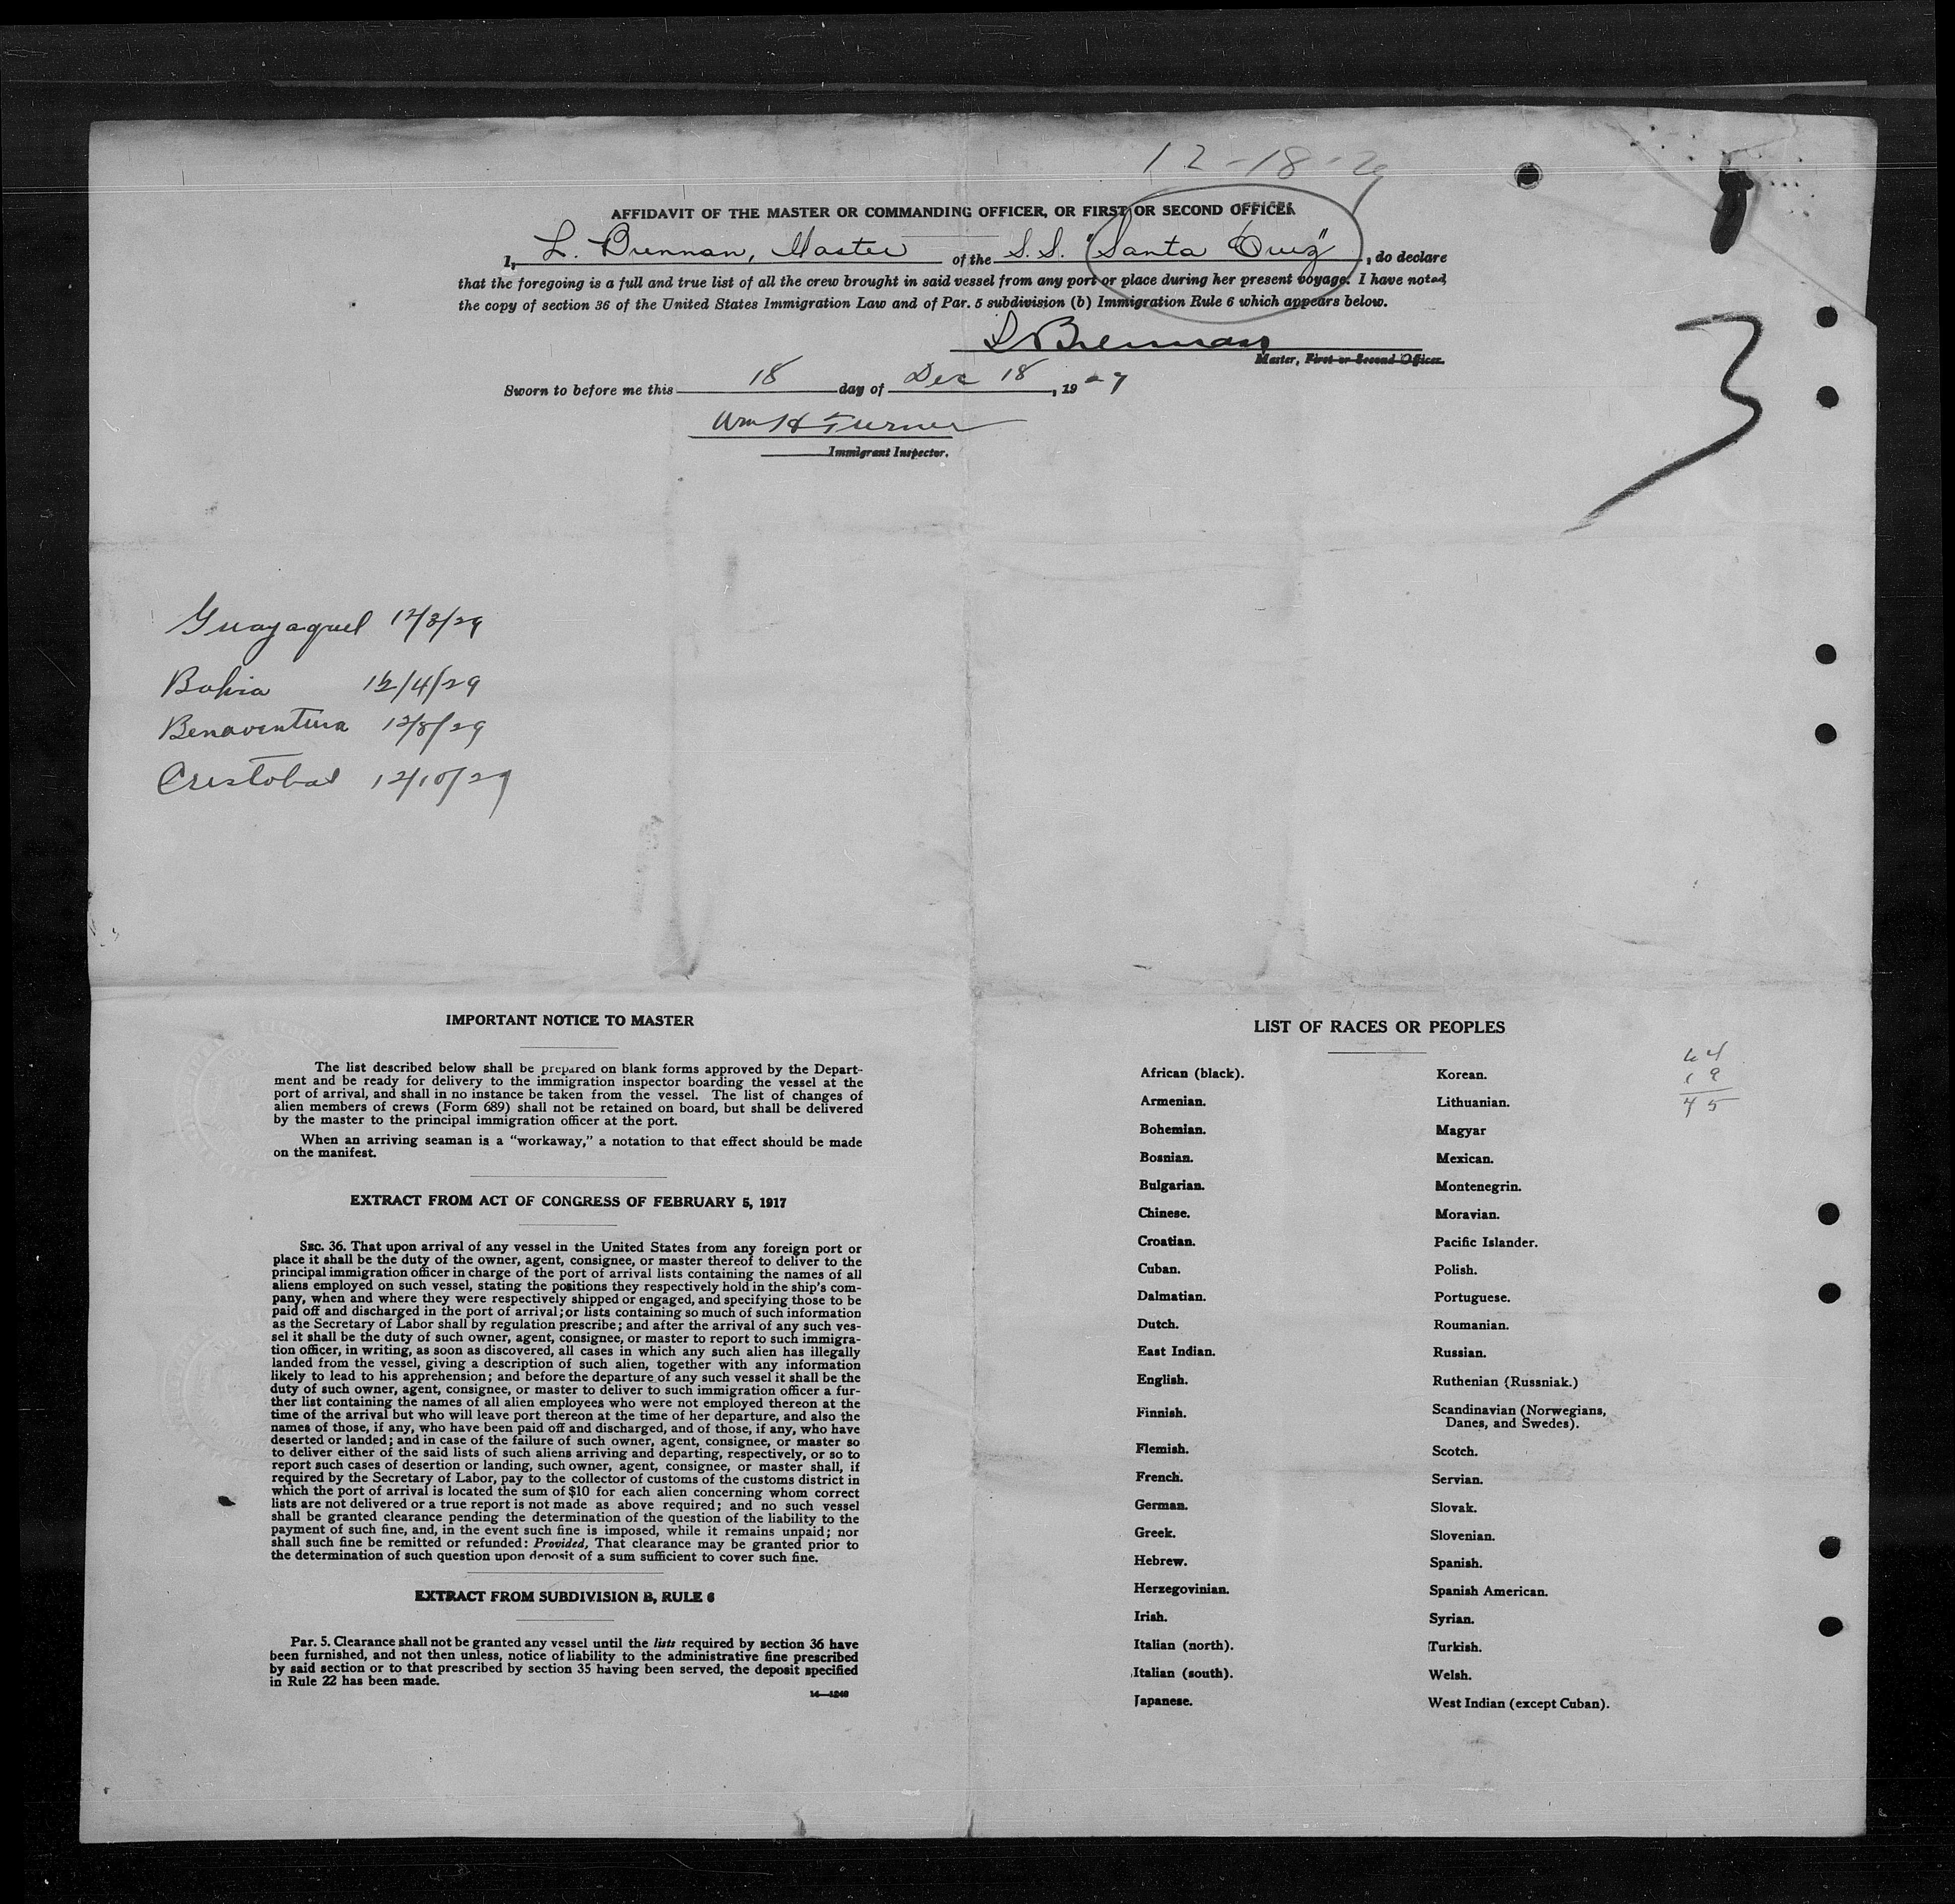 12-18-29
AFFIDAVIT OF THE MASTER OR COMMANDING OFFICER, OR FIRST OR SECOND OFFICER
I, L. Brennan, Master of the S.S. "Santa Cruz", do declare
that the foregoing is a full and true list of all the crew brought in said vessel from any port or place during her present voyage. I have noted
the copy of section 36 of the United States Immigration Law and of Par. 5 subdivision (b) Immigration Rule 6 which appears below.
L Brennan
Master, First or Second Officer.
3
Sworn to before me this 18 day of Dec 18, 1929
Wm H Turner
Immigrant Inspector.
Guayaquil 12/3/29
Bahia 12/4/29
Benaventura 12/8/29
Cristobal 12/10/29
IMPORTANT NOTICE TO MASTER
The list described below shall be prepared on blank forms approved by the Depart-
ment and be ready for delivery to the immigration inspector boarding the vessel at the
port of arrival, and shall in no instance be taken from the vessel. The list of changes of
alien members of crews (Form 689) shall not be retained on board, but shall be delivered
by the master to the principal immigration officer at the port.
When an arriving seaman is a "workaway," a notation to that effect should be made
on the manifest.
EXTRACT FROM ACT OF CONGRESS OF FEBRUARY 5, 1917
SEC. 36. That upon arrival of any vessel in the United States from any foreign port or
place it shall be the duty of the owner, agent, consignee, or master thereof to deliver to the
principal immigration officer in charge of the port of arrival lists containing the names of all
aliens employed on such vessel, stating the positions they respectively hold in the ship's com-
pany, when and where they were respectively shipped or engaged, and specifying those to be
paid off and discharged in the port of arrival; or lists containing so much of such information
as the Secretary of Labor shall by regulation prescribe; and after the arrival of any such ves-
sel it shall be the duty of such owner, agent, consignee, or master to report to such immigra-
tion officer, in writing, as soon as discovered, all cases in which any such alien has illegally
landed from the vessel, giving a description of such alien, together with any information
likely to lead to his apprehension; and before the departure of any such vessel it shall be the
duty of such owner, agent, consignee, or master to deliver to such immigration officer a fur-
ther list containing the names of all alien employees who were not employed thereon at the
time of the arrival but who will leave port thereon at the time of her departure, and also the
names of those, if any, who have been paid off and discharged, and of those, if any, who have
deserted or landed; and in case of the failure of such owner, agent, consignee, or master so
to deliver either of the said lists of such aliens arriving and departing, respectively, or so to
report such cases of desertion or landing, such owner, agent, consignee, or master shall, if
required by the Secretary of Labor, pay to the collector of customs of the customs district in
which the port of arrival is located the sum of $10 for each alien concerning whom correct
lists are not delivered or a true report is not made as above required; and no such vessel
shall be granted clearance pending the determination of the question of the liability to the
payment of such fine, and, in the event such fine is imposed, while it remains unpaid; nor
shall such fine be remitted or refunded: Provided, That clearance may be granted prior to
the determination of such question upon deposit of a sum sufficient to cover such fine.
EXTRACT FROM SUBDIVISION B, RULE 6
Par. 5. Clearance shall not be granted any vessel until the lists required by section 36 have
been furnished, and not then unless, notice of liability to the administrative fine prescribed
by said section or to that prescribed by section 35 having been served, the deposit specified
in Rule 22 has been made.
14—1240
LIST OF RACES OR PEOPLES
African (black).
Armenian.
Bohemian.
Bosnian.
Bulgarian.
Chinese.
Croatian.
Cuban.
Dalmatian.
Dutch.
East Indian.
English.
Finnish.
Flemish.
French.
German.
Greek.
Hebrew.
Herzegovinian.
Irish.
Italian (north).
Italian (south).
Japanese.
Korean.
Lithuanian.
Magyar
Mexican.
Montenegrin.
Moravian.
Pacific Islander.
Polish.
Portuguese.
Roumanian.
Russian.
Ruthenian (Russniak.)
Scandinavian (Norwegians,
Danes, and Swedes).
Scotch.
Servian.
Slovak.
Slovenian.
Spanish.
Spanish American.
Syrian.
Turkish.
Welsh.
West Indian (except Cuban).